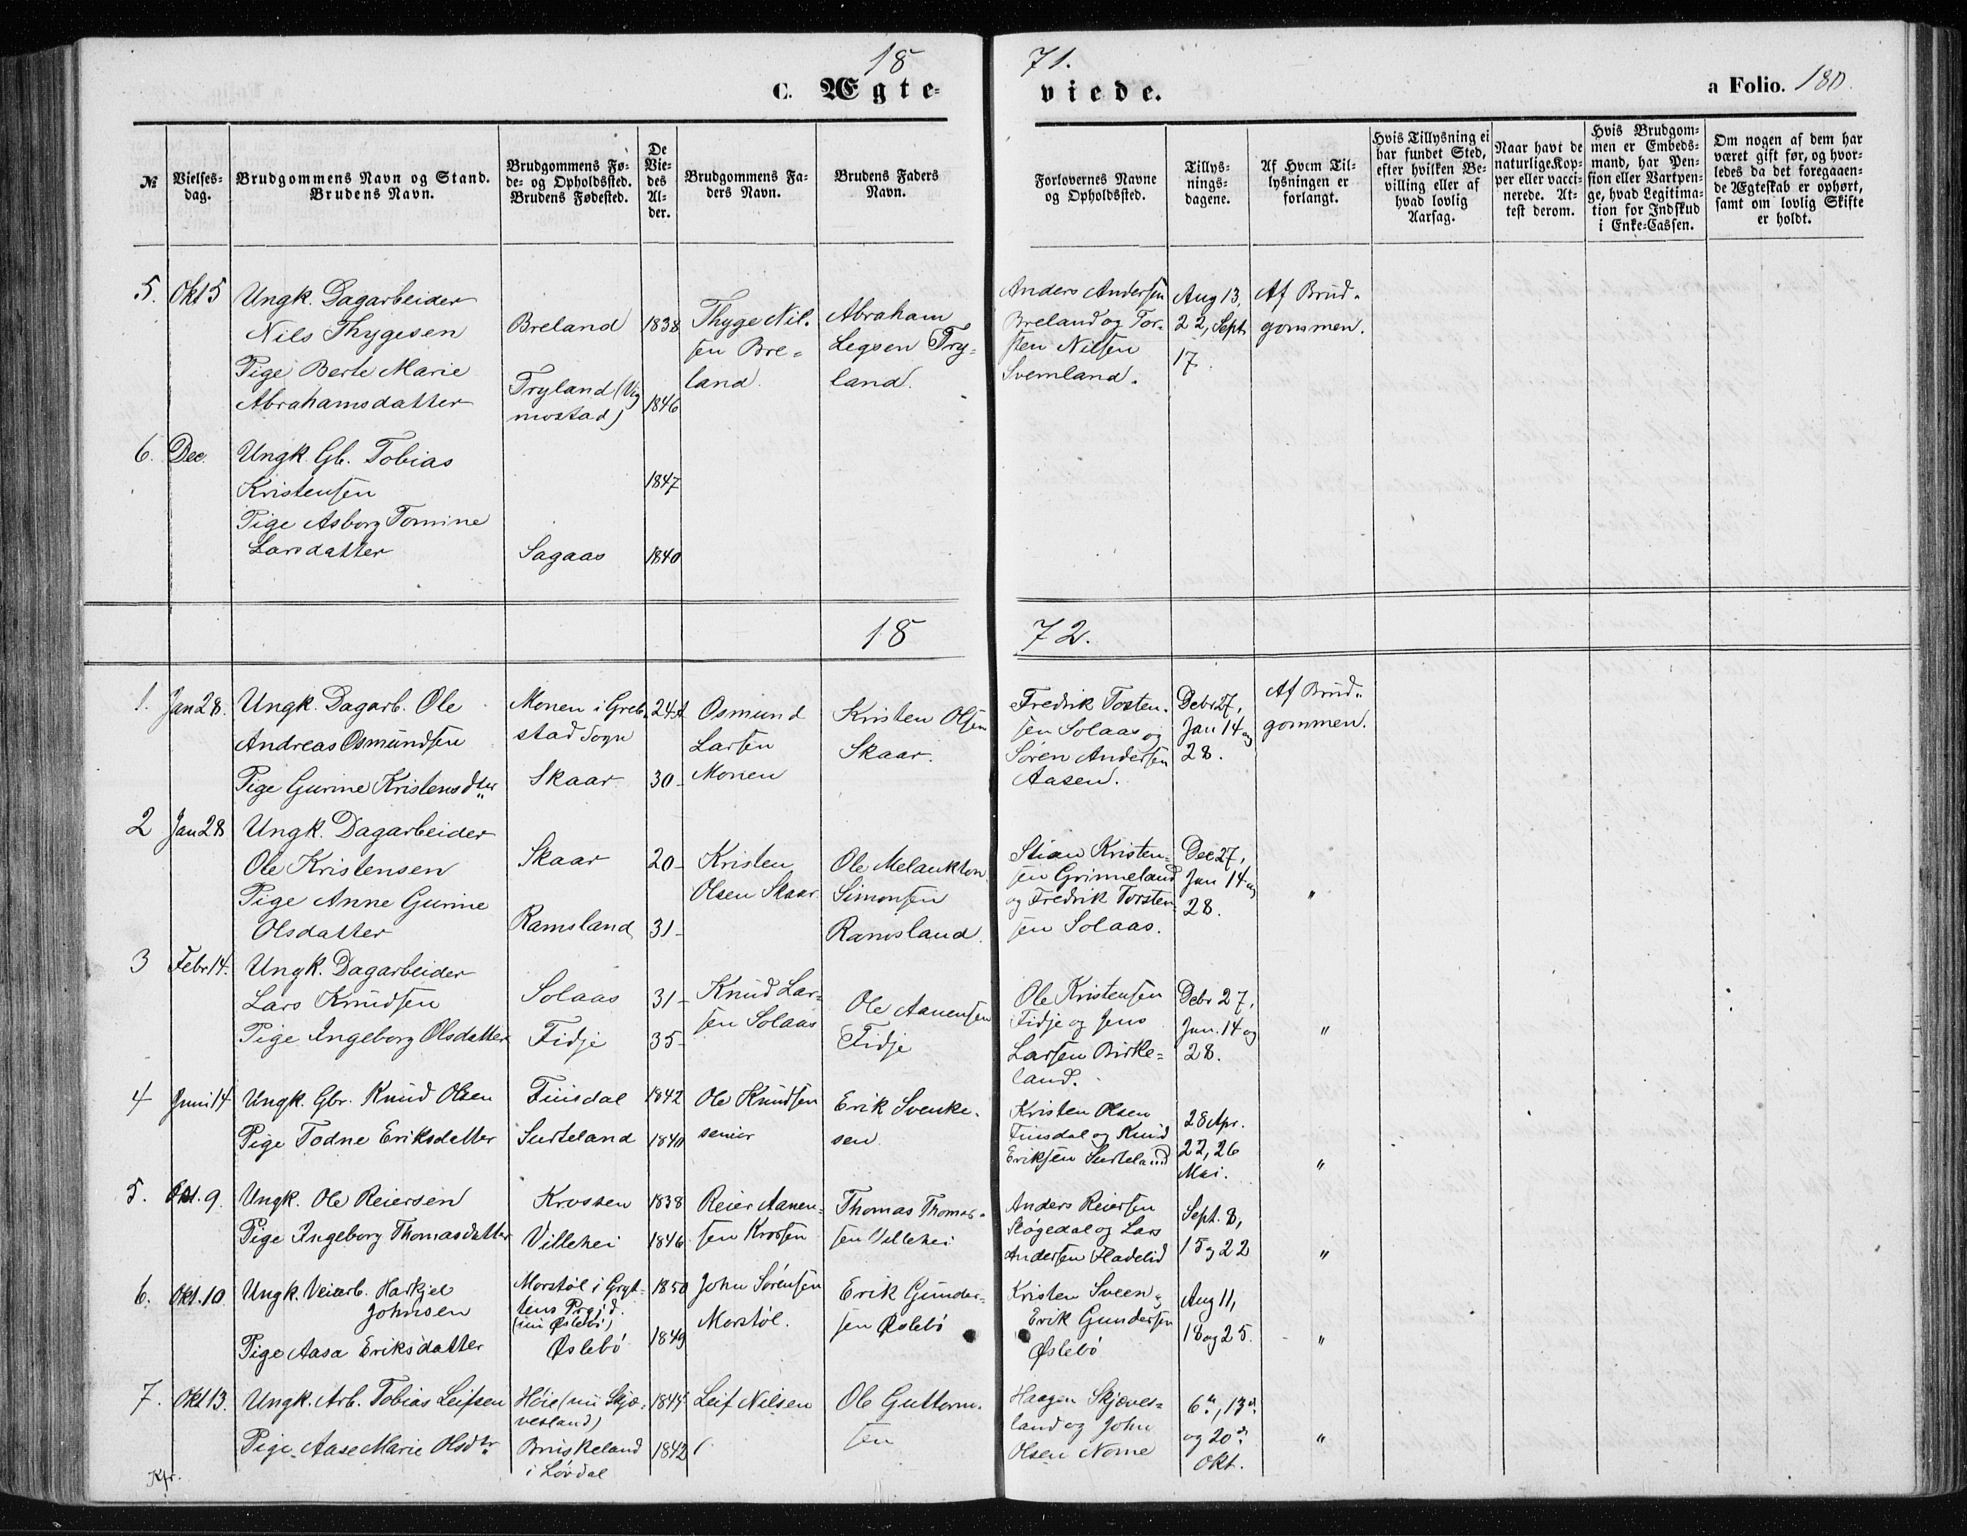 18 71.
C. Ægte-
viede.
a Folio. 180.
№
Vielses-
dag.
Brudgommens Navn og Stand.
Brudens Navn.
Brudgommens Fø-
de- og Opholdssted.
Brudens Fødested.
De
Vie-
des
Al-
der.
Brudgommens Fa-
ders Navn.
Brudens Faders
Navn.
Forlovernes Navne
og Opholdssted.
Tillys-
nings-
dagene.
Af Hvem Til-
lysningen er
forlangt.
Hvis Tillysning ei
har fundet Sted,
efter hvilken Be-
villing eller af
hvad lovlig
Aarsag.
Naar havt de
naturlige Kop-
per eller vacci-
nerede. At-
test derom.
Hvis Brudgom-
men er Embeds-
mand, har Pen-
sion eller Vartpen-
ge, hvad Legitima-
tion for Indskud
i Enke-Cassen.
Om nogen af dem har
været gift før, og hvor-
ledes da det foregaaen-
de Ægteskab er ophørt,
samt om lovlig Skifte
er holdt.
5. Okt 5
Ungk. Dagarbeider
Nils Thygesen
Pige Berte Marie
Abrahamsdatter
Breland
Tryland (Vig
mostad)
1838
1846
Thyge Nil-
sen Bre-
land.
Abraham
Legsen Try-
land.
Anders Andersen
Breland og Tor-
sten Nilsen
Svemland.
Aug 13,
22, Sept
17.
Af Brud-
gommen.
6. Dec.
Ungk. Gb. Tobias
Kristensen
Pige Asborg Tomine
Larsdatter
Sagaas
1847
1840
18 72.
1. Jan 28.
Ungk. Dagarb. Ole
Andreas Osmundsen
Pige Gurine Kristensdtr
Monen i Greb-
stad Sogn
Skaar
24
30-
Osmund
Larsen
Monen
Kristen Olsen
Skaar.
Fredrik Torsten-
sen Solaas og
Søren Andersen
Aasen.
Debr 27,
Jan 14 og
28.
Af Brud-
gommen.
2 Jan 28
Ungk. Dagarbeider
Ole Kristensen
Pige Anne Gurine
Olsdatter
Skaar
Ramsland
20-
31-
Kristen
Olsen Skaar.
Ole Melankton
Simonsen
Ramsland.
Stian Kristen-
sen Grinneland
og Fredrik Torsten-
sen Solaas.
Dec 27,
Jan 14 og
28.
"
3 Febr 14.
Ungk. Dagarbeider
Lars Knudsen
Pige Ingeborg Olsdatter
Solaas
Fidje
31-
35-
Knud Lar-
sen Solaas
Ole Aanensen
Fidje
Ole Kristensen
Fidje og Jens
Larsen Birke-
land.
Debr 27,
Jan. 14 og
28.
"
4 Juni 14
Ungk. Gbr. Knud Olsen
Pige Todne Eriksdatter
Finsdal
Surteland
1842
1840
Ole Knudsen
senior
Erik Svenke-
sen.
Kristen Olsen
Finsdal og Knud
Eriksen Surteland
28 Apr.
22, 26
Mai.
"
5. Okt. 9
Ungk. Ole Reiersen
Pige Ingeborg Thomasdatter
Krossen
Villehei
1838
1846
Reier Aanen-
sen Krossen
Thomas Thomas-
sen Villehei
Anders Reiersen
Støgedal og Lars
Andersen Fladelid
Sept. 8,
15 og 22
"
6. Okt. 10
Ungk. Veiarb. Harkjel
Johnsen
Pige Aasa Eriksdatter
Morstøl i Gryt-
tens Prgjd.
(nu Øslebø)
Øslebø
1850
1849
John Sørensen
Morstøl.
Erik Gunder-
sen Øslebø
Kristen Sveen,
Erik Gundersen
Øslebø
Aug 11,
18 og 25.
"
7. Okt 13.
Ungk. Arb. Tobias Leifsen
Pige Aase Marie Olsdtr
Høie (nu Skjæ-
vesland)
Bruskeland
i Løvdal
1845
1842
Leif Nilsen
Ole Guttorm-
sen
Haagen Skjæves-
land og John
Olsen Nome
6te, 13de
og 20de
Okt.
"
Kfr.